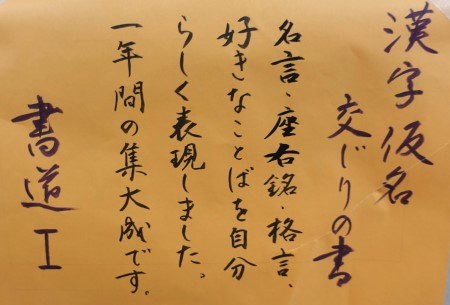 漢字仮名
交じりの書
名言・座右銘・格言、
好きなことばを自分
らしく表現しました。
一年間の集大成です。
書道I